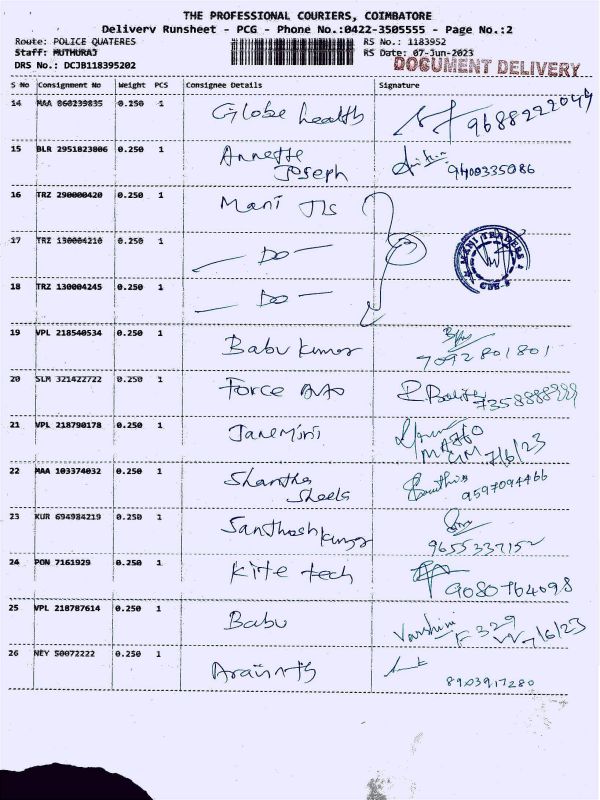 THE PROFESSIONAL COURIERS, COIMBATORE
Delivery Runsheet - PCG - Phone No.:0422-3505555 - Page No.:2
Route: POLICE QUATERES RS No.: 1183952
Staff: MUTHURAJ RS Date: 07-Jun-2023
DRS No.: DCJB118395202 DOCUMENT DELIVERY
S No Consignment No Weight PCS Consignee Details Signature
14 MAA 860239835 0.250 1 Globe health 9688222049
15 BLR 2951823806 0.250 1 Annette Joseph 9400335086
16 TRZ 290000420 0.250 1 Mani
17 TRZ 130004210 0.250 1 — Do — 3
MANI TRADERS
18 TRZ 130004245 0.250 1 — Do —
19 VPL 218540534 0.250 1 Babu Kumar 7092801801
20 SLM 321422722 0.250 1 Force
21 VPL 218790178 0.250 1 7/6/23
22 MAA 103374032 0.250 1 Shantha Sheels 9597094466
23 KUR 694984219 0.250 1 Santhosh Kumar 9655337152
24 PON 7161929 0.250 1 Kite tech 9080764098
25 VPL 218787614 0.250 1 Babu Varshini F 329 7/6/23
26 NEY 50072222 0.250 1 8903917280